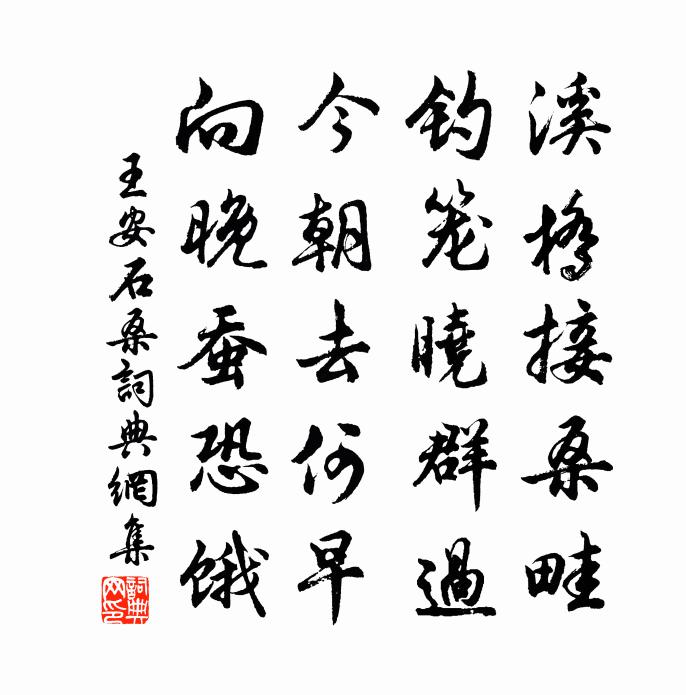 溪橋接桑畦
钓笼曉群過
今朝去何早
向晚蚕恐饿
王安石桑詞典網集
詞典网印